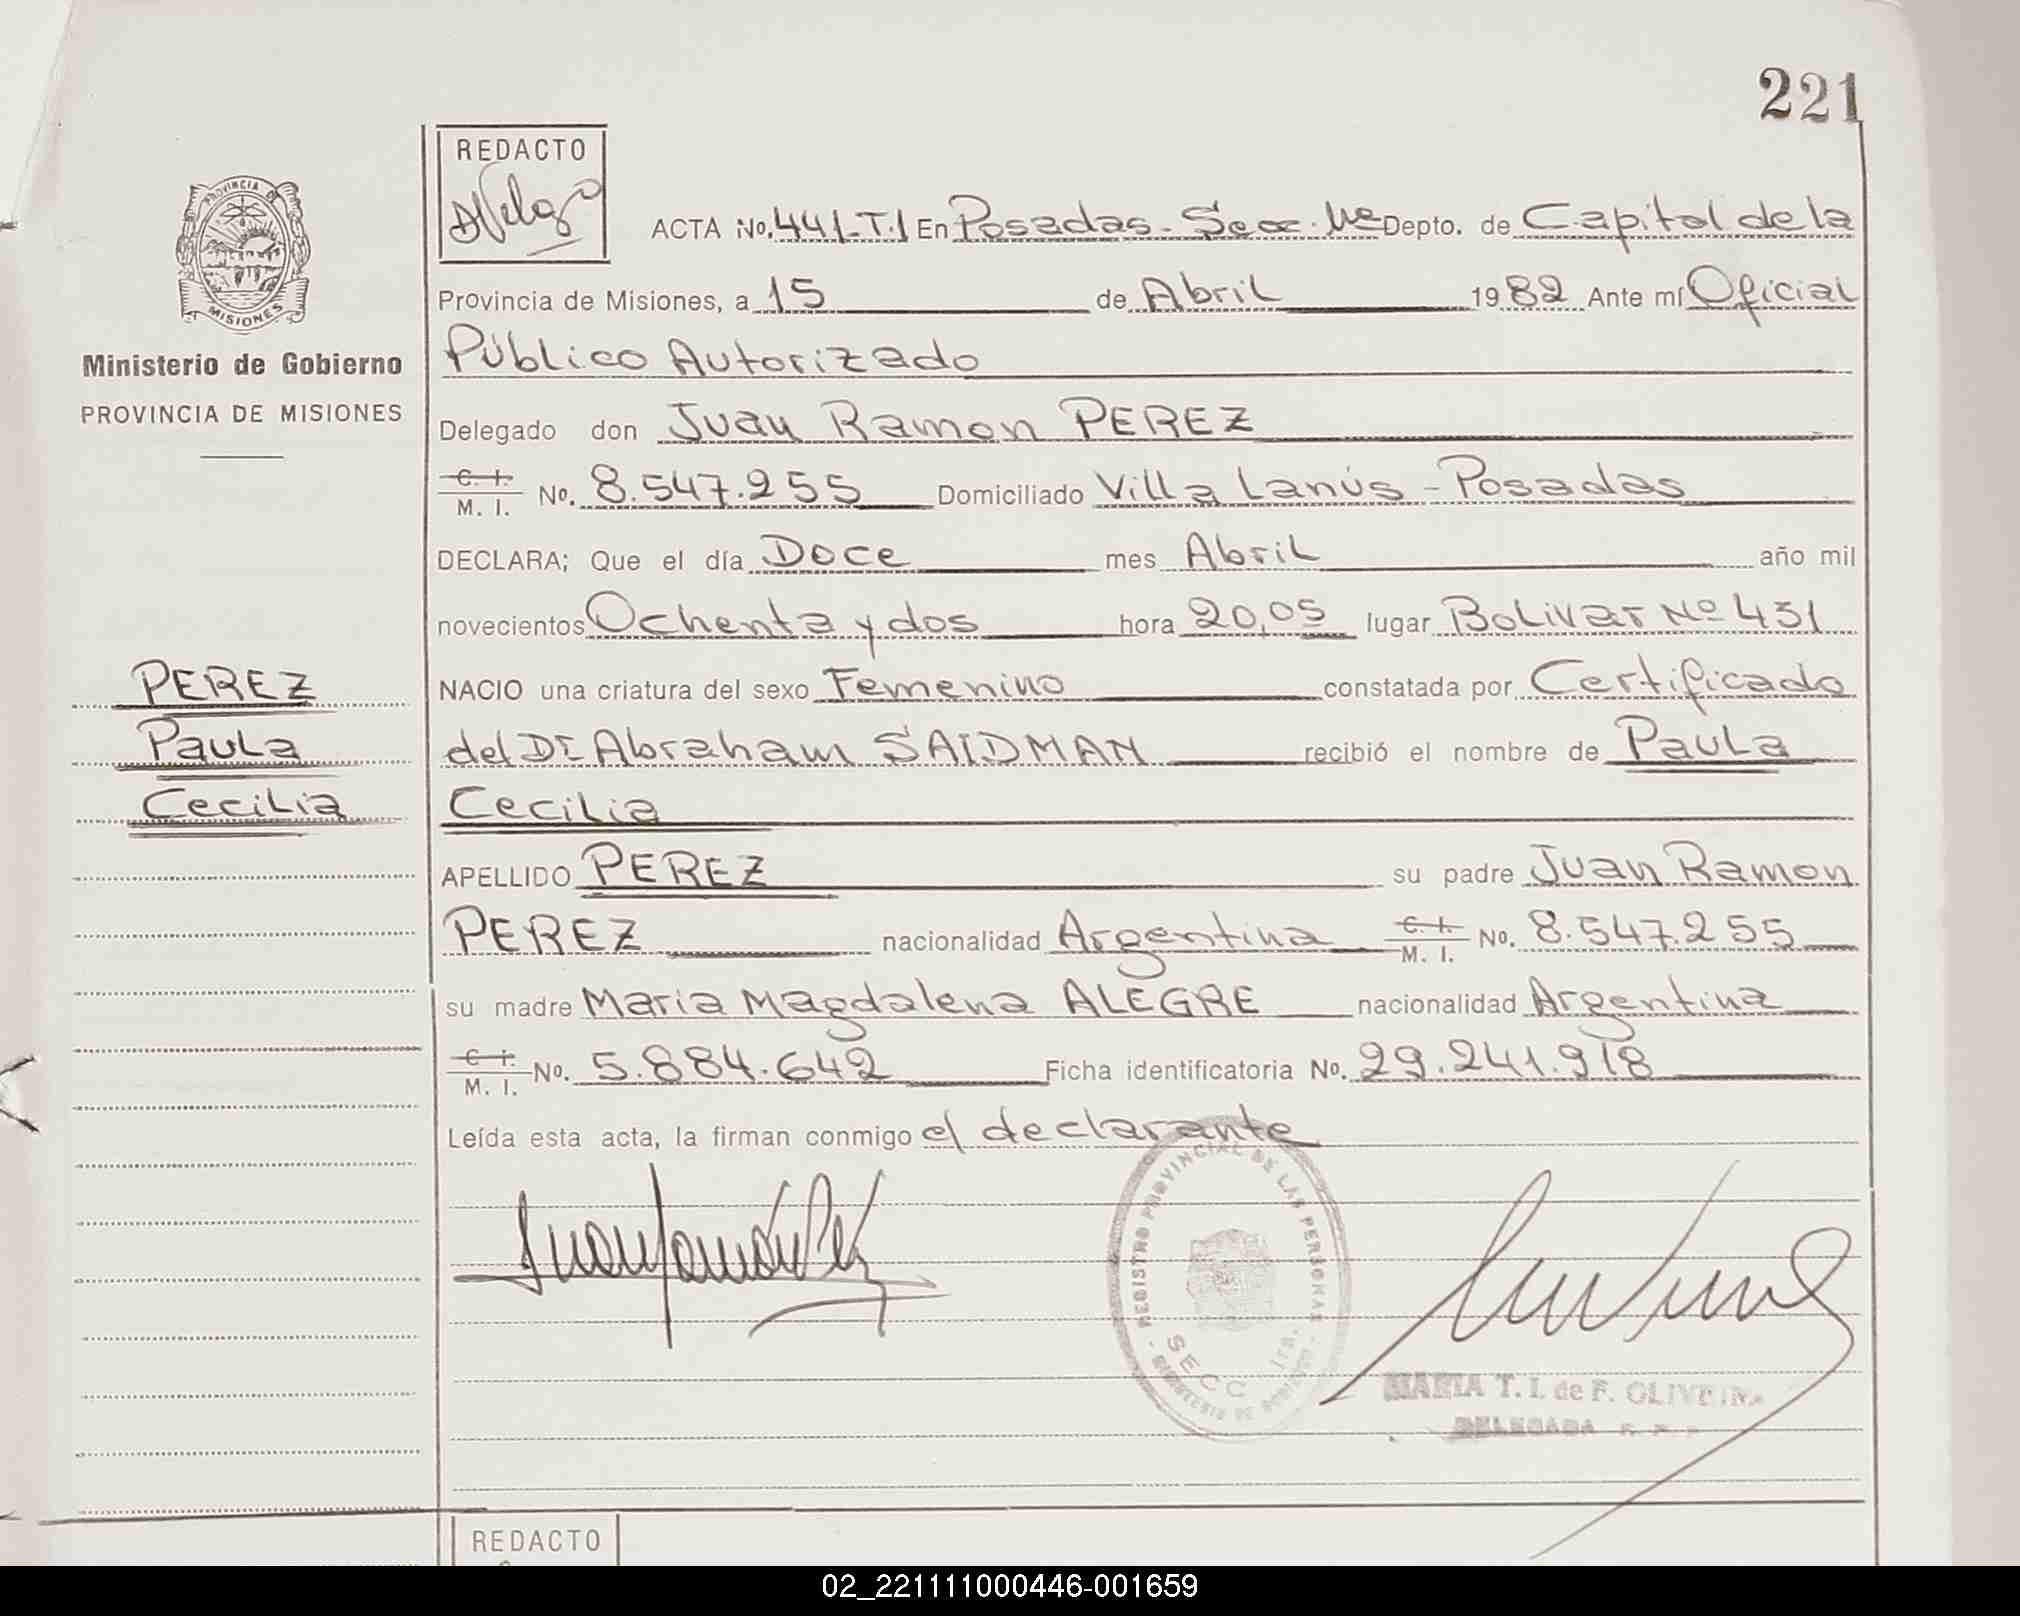 221
REDACTO
PROVINCIA DE
MISIONES
Ministerio de Gobierno
PROVINCIA DE MISIONES
ACTA No. 441-T.I En Posadas - Secc. 1ra Depto. de Capital de la
Provincia de Misiones, a 15 de Abril 1982 Ante mí Oficial
Público Autorizado
Delegado don Juan Ramon PEREZ
C. I. M. I. No. 8.547.255 Domiciliado Villa Lanús - Posadas
DECLARA; Que el día Doce mes Abril año mil
novecientos Ochenta y dos hora 20,05 lugar Bolivar Nº 431
NACIO una criatura del sexo Femenino constatada por Certificado
del Dr Abraham SAIDMAN recibió el nombre de Paula
Cecilia
APELLIDO PEREZ su padre Juan Ramon
PEREZ nacionalidad Argentina C. I. M. I. No. 8.547.255
su madre Maria Magdalena ALEGRE nacionalidad Argentina
C. I. M. I. No. 5.884.642 Ficha identificatoria No. 29.241.918
Leída esta acta, la firman conmigo el declarante
PEREZ
Paula
Cecilia
REGISTRO PROVINCIAL DE LAS PERSONAS
SECC 1ra.
MARIA T. I. de F. OLIVEIRA
DELEGADA
REDACTO
02_221111000446-001659